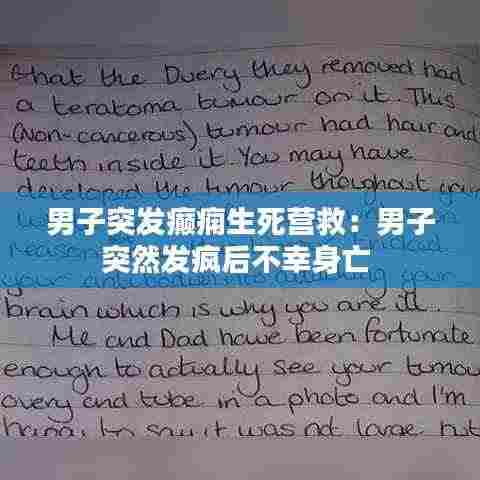 that the Overy they removed had
a teratoma tumour on it. This
(Non-cancerous) tumour had hair and
teeth inside it. You may have
developed the tumour thoughout your
男子突发癫痫生死营救：男子
突然发疯后不幸身亡
your
brain which is why you are ill.
Me and Dad have been fortunate
enough to actually see your tumou
overy and tube in a photo and I'm
to say it was not large but